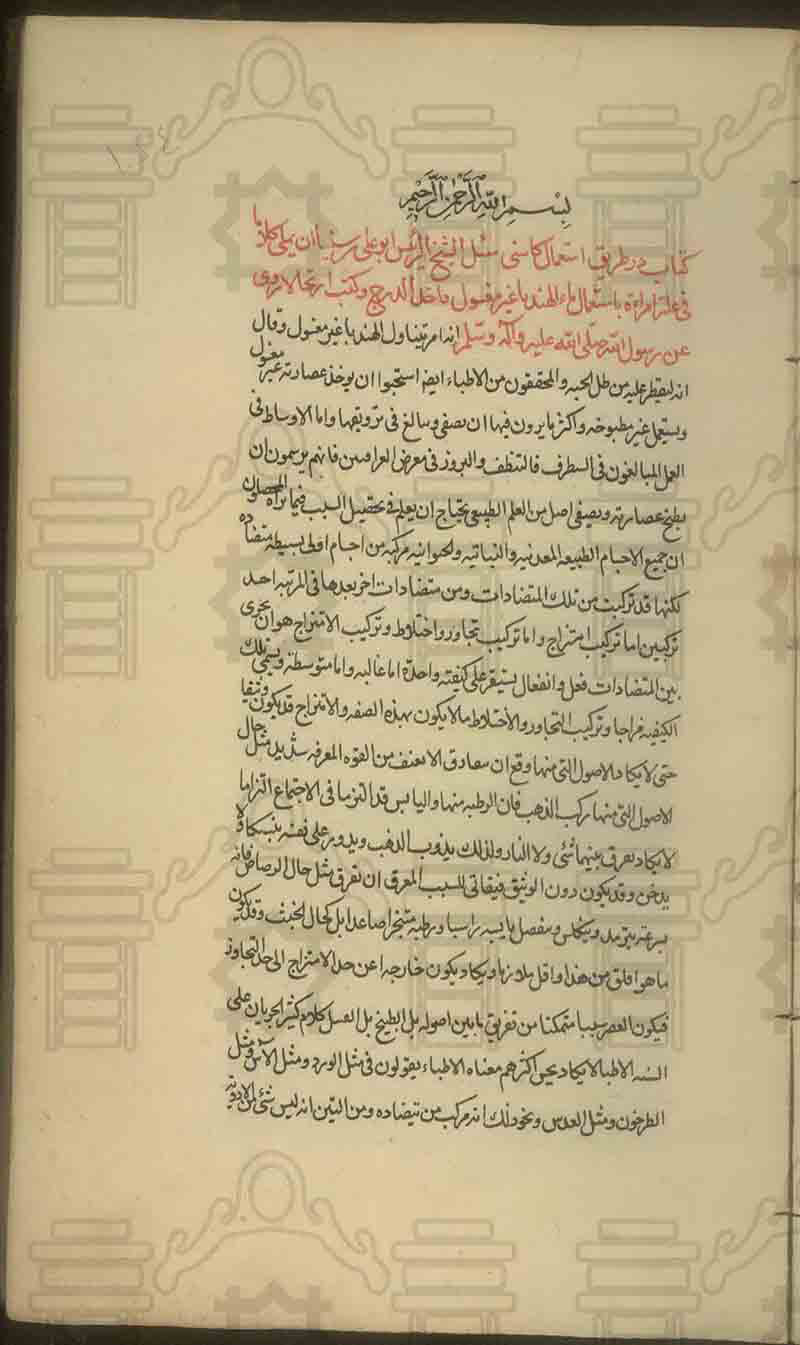 بسم الله الرحمن الرحيم
كتاب در طريق استعمال كاسنى سئل الشيخ الرئيس ابو على بن سينا ان يملى كلاما
فى علة امراءة باستعمال ماء الهندبا غير مغسول فاخذ الدرج وكتب ارتجالا روى
عن رسول الله صلى الله عليه وآله وسلم انه امر بتناول الهندبا غير مغسول وقال
انه ليقطر عليه من طل الجنه والمحققون من الاطباء ايضا استحبوا ان يوخذ عصارته غير مغسول
ويستعمل غير مطبوخه واكثر ما يرون فيها ان يصفى ويبالغ فى ترويقها واما الاوساط فى
العمل المبالغون فى التنظف والبروز فى معرض فانهم يرسمون ان
يطبخ عصارته ويصفى اصل من العلم الطبيعى يحتاج ان يعلم فى تحصيل السبب فيما
ان جميع الاجسام الطبيعه المعدنيه والنباتيه والحيوانيه مركبه من اجسام اولى بسيطه متضاده
لكنها قد تركبت من تلك المتضادات ومن متضادات اخر بعدها فى المرتبه احد
تركيبين اما تركيب امتزاج واما تركيب تجاور واختلاط وتركيب الامتزاج هو ان يجرى
بين المتضادات فعل وانفعال يستقر على كيفيته واحدة اما غالبه واما متوسطه ويسمى تلك
الكيفيه مزاجا وتركيب التجاور والاختلاط ما لا يكون بهذه الصفه والامتزاج قد يكون وثيقا
حتى لا يكاد الاصول التى منها وقع ان من القوه المفرقه شديد مثل حال
الاصول التى منها ركب الذهب فان الرطبه منها واليابس قد التزما فى الاجتماع التزاما
لا يكاد يفرق بينهما شئى ولا النار ولذلك يذوب الذهب ويدور على نفسه ولا
يدخن وقد يكون دون الوثيق فيقاتى للسبب المفرق ان تفرق مثل حال الرصاص فانه
بسرعه يترمد ويتكلس وينفصل يابسه راسبا ورطبه متبخرا صاعدا بل كحال الخبث وقد يكون
ما هو اقلق من هذا واقل ملازمه ويكاد يكون خارجا عن حد الامتزاج الى حد التجاور
فيكون العصر سببا متمكنا من تفريق ما بين اصوله بل الطبخ بل الغسل كلام كثير الجريان على
السنه الاطبا لا يكاد يعى اكثرهم معناه الاطباء يقولون فى مثل الورد ومثل الآس ومثل
الطرخون ومثل العدس ونحو ذلك انه مركب من متضاده ومن البين انه ليس شئى من الادويه